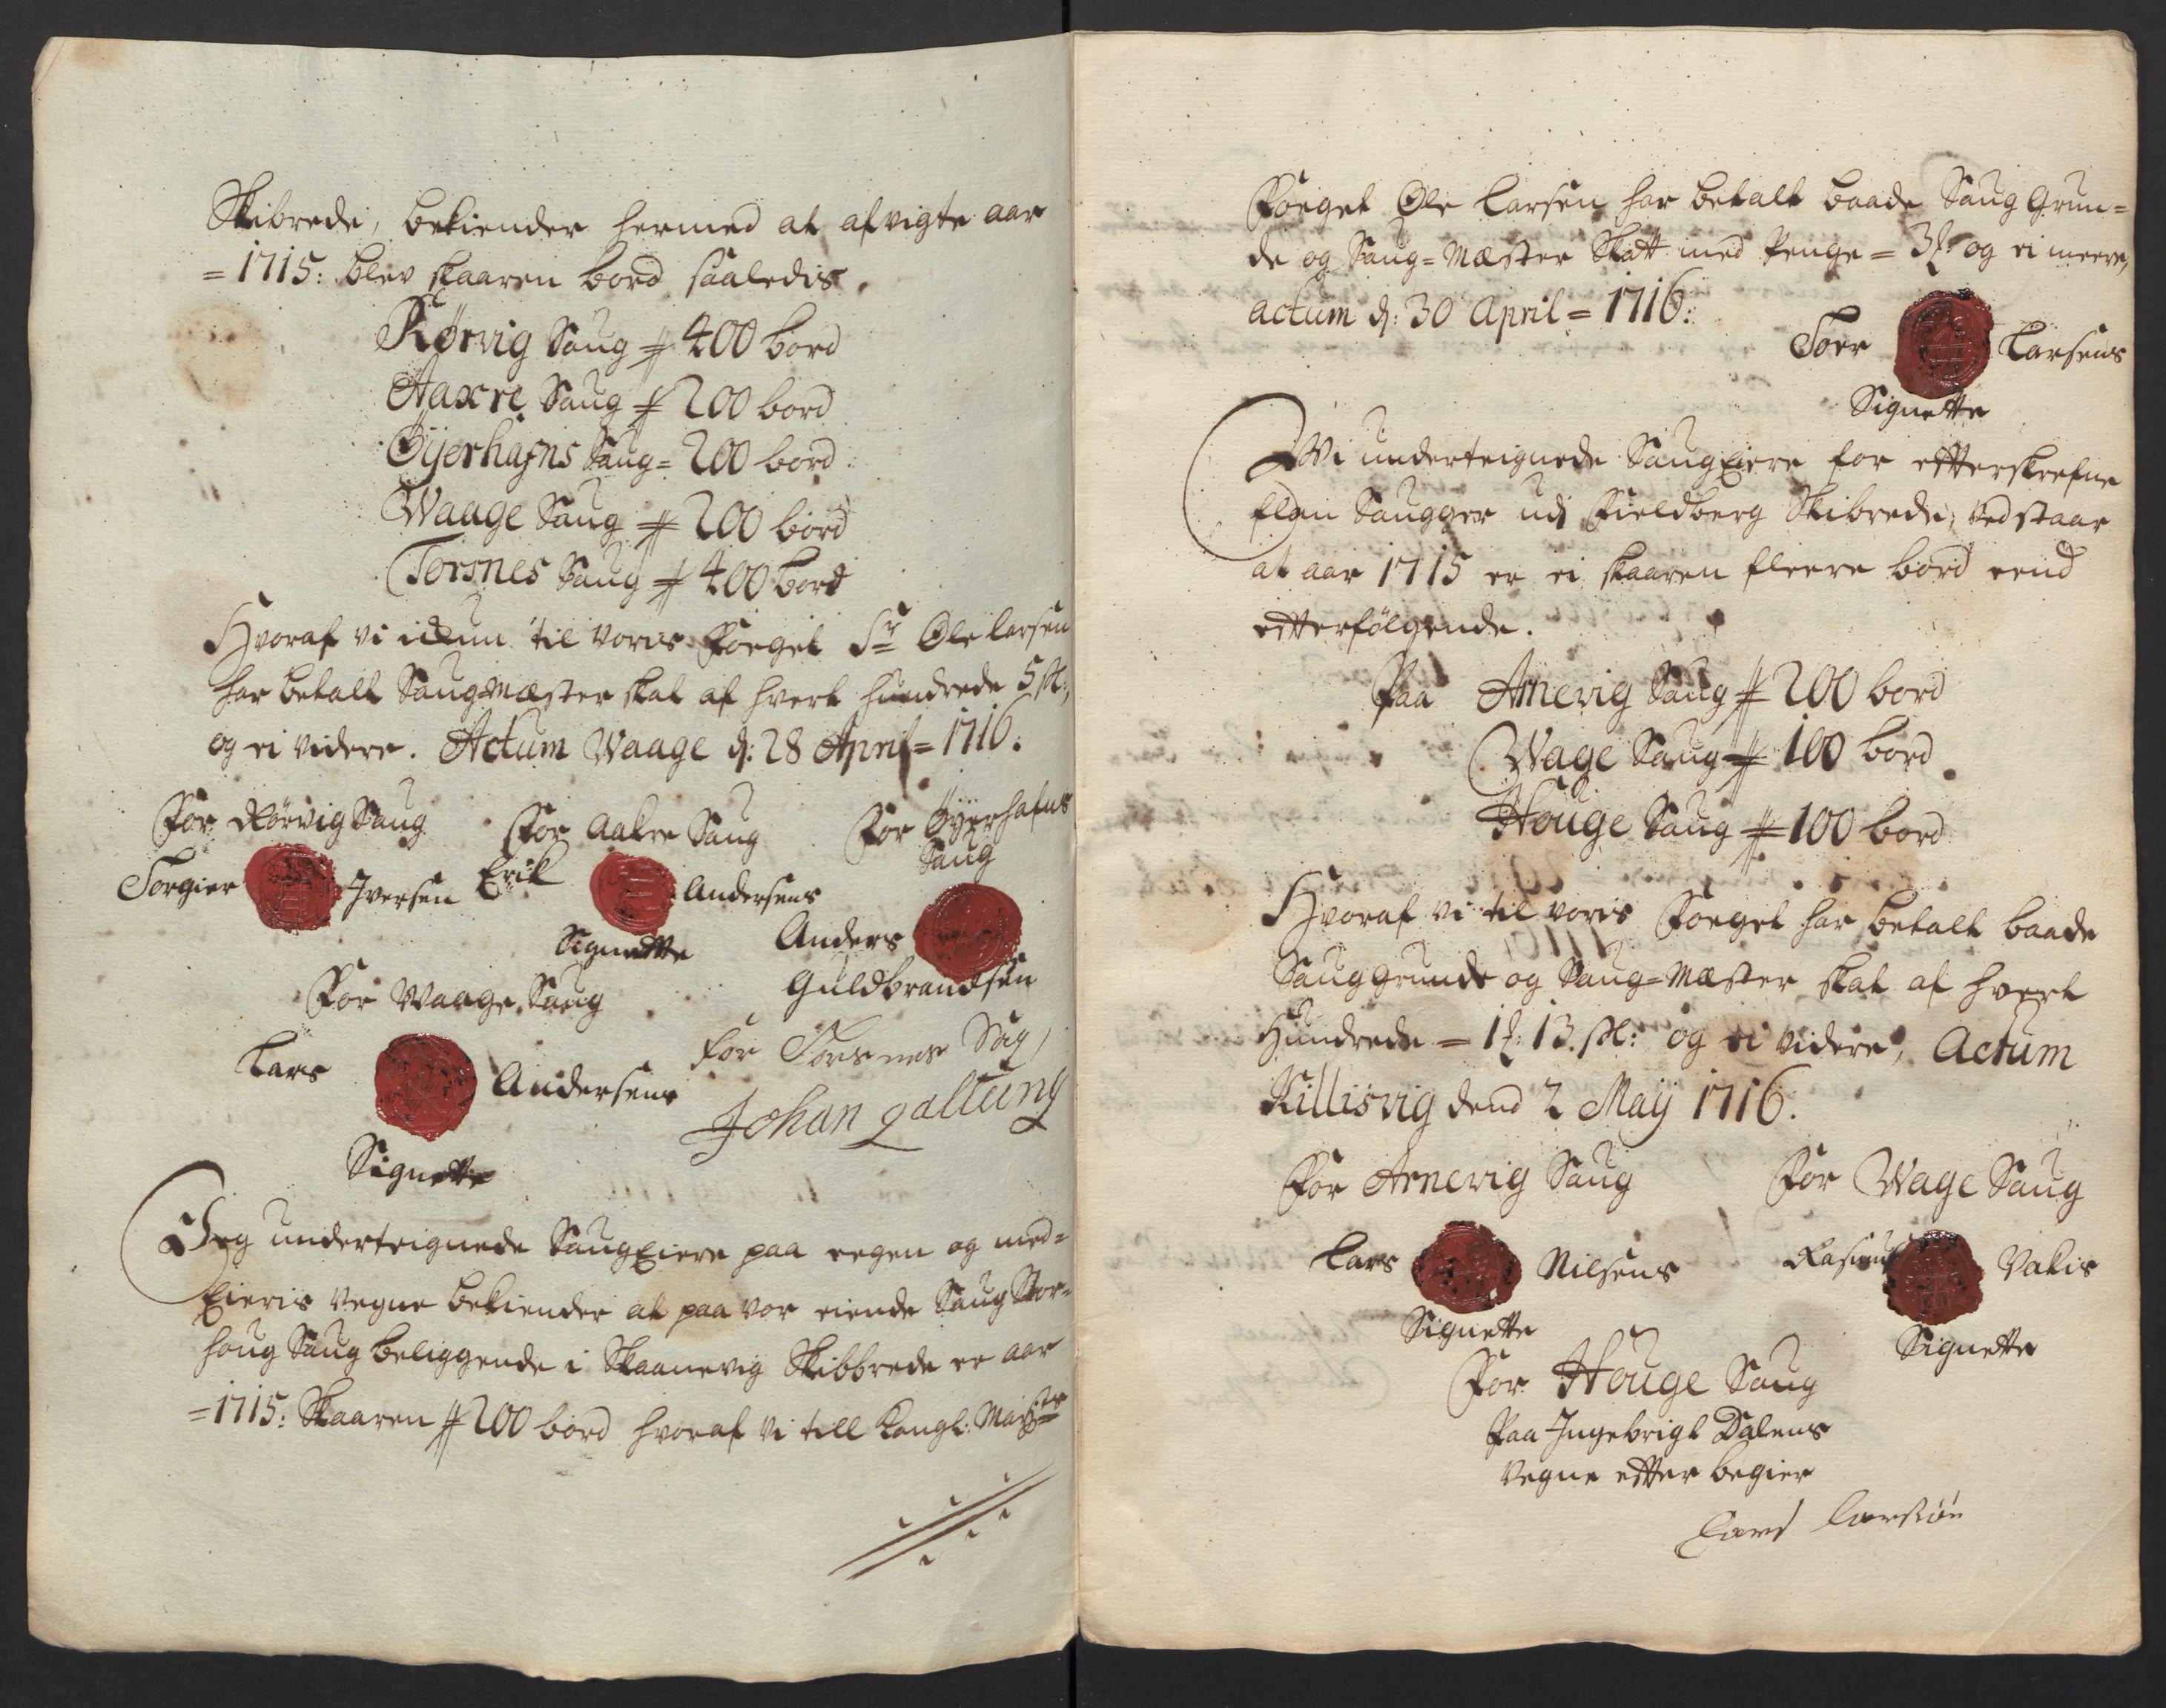 Skibrede, bekiender hermed at afvigte aar
= 1715: blev skaaren bord saaledis.
Rørvig Saug = 400 bord
Aaxre Saug = 200 bord
Øÿerhafns Saug = 200 bord
Waage Saug = 200 bord
Torsnes Saug = 400 bord
Hvoraf vi til voris Foeget Sr Ole Larsen
har betalt Saug-Mæster skat af hvert hundrede 5 sk:,
og ei videre. Actum Waage d: 28 April = 1716:
For Rørvig Saug
For Aakre Saug
For Øÿerhafns
Saug
Torgier Iversen
Erik Andersens
Signette
Anders
Guldbrandsen
For Waage Saug
Lars Andersens
Signette
for Torsnes Sag
Johan galtung
Jeg underteignede Saug Eiere paa eegen og med-
Eieris vegne bekiender at paa vor eiende Saug Stor-
houg Saug beliggende i Skaanevig Skibbrede er aar
= 1715: Skaaren 200 bord hvoraf vi till Kongl: Maysts
Foeget Ole Larsen har betalt baade Saug Grun=
de og Saug=Mæster Skatt med Penge = 3 og ei meere,
actum d: 30 April = 1716:
Toer Larsens
Signette
Wi underteignede Saug Eiere for etterskrefne
flom Saugger udi Fieldberg Skibrede, ved staar
at aar 1715 er ei skaaren fleere bord end
etterfølgende.
Paa Arnevig Saug = 200 bord
Wage Saug = 100 bord
Houge Saug = 100 bord
Hvoraf vi til voris Foeget har betalt baade
Saug grunde og Saug=Mæster skat af hvert
Hundrede = 1: 13 sk: og ei videre, Actum
Killisvig dend 2 Maij 1716.
For Arnevig Saug
For Wage Saug
Lars Nilsens
Signette
Rasmus Vakis
Signette
For Houge Saug
Paa Ingebrigt Dalens
Vegne etter begier
Lars Larsøn